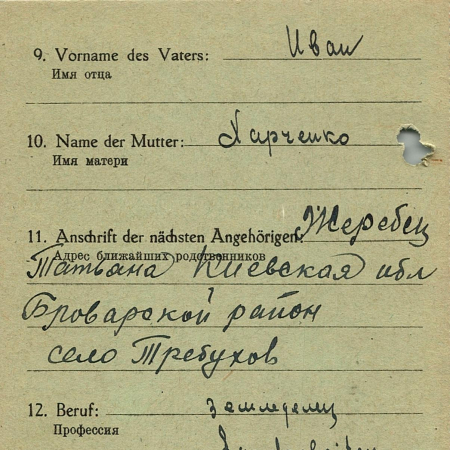 9. Vorname des Vaters: Иван
Имя отца
10. Name der Mutter: Харченко
Имя матери
11. Anschrift der nächsten Angehörigen: Жеребец
Адрес ближайших родственников
Татьана Киевская обл
Броварской район
село Требухов
12. Beruf: земледелец
Профессия